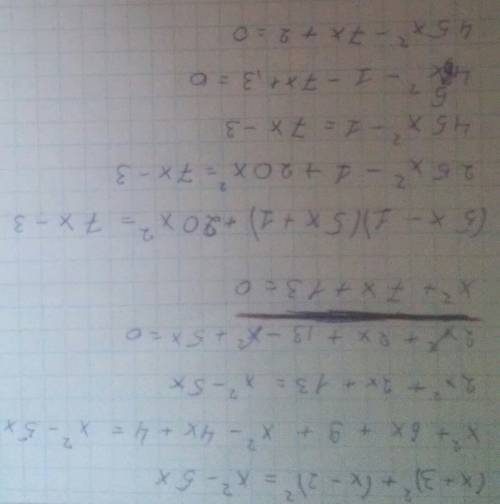 (x+3)²+(x-2)²=x²-5x
x²+6x+9+x²-4x+4=x²-5x
2x²+2x+13=x²-5x
2x²+2x+13-x²+5x=0
x²+7x+13=0
(5x-1)(5x+1)+20x²=7x-3
25x²-1+20x²=7x-3
45x²-1=7x-3
45x²-1-7x+3=0
45x²-7x+2=0